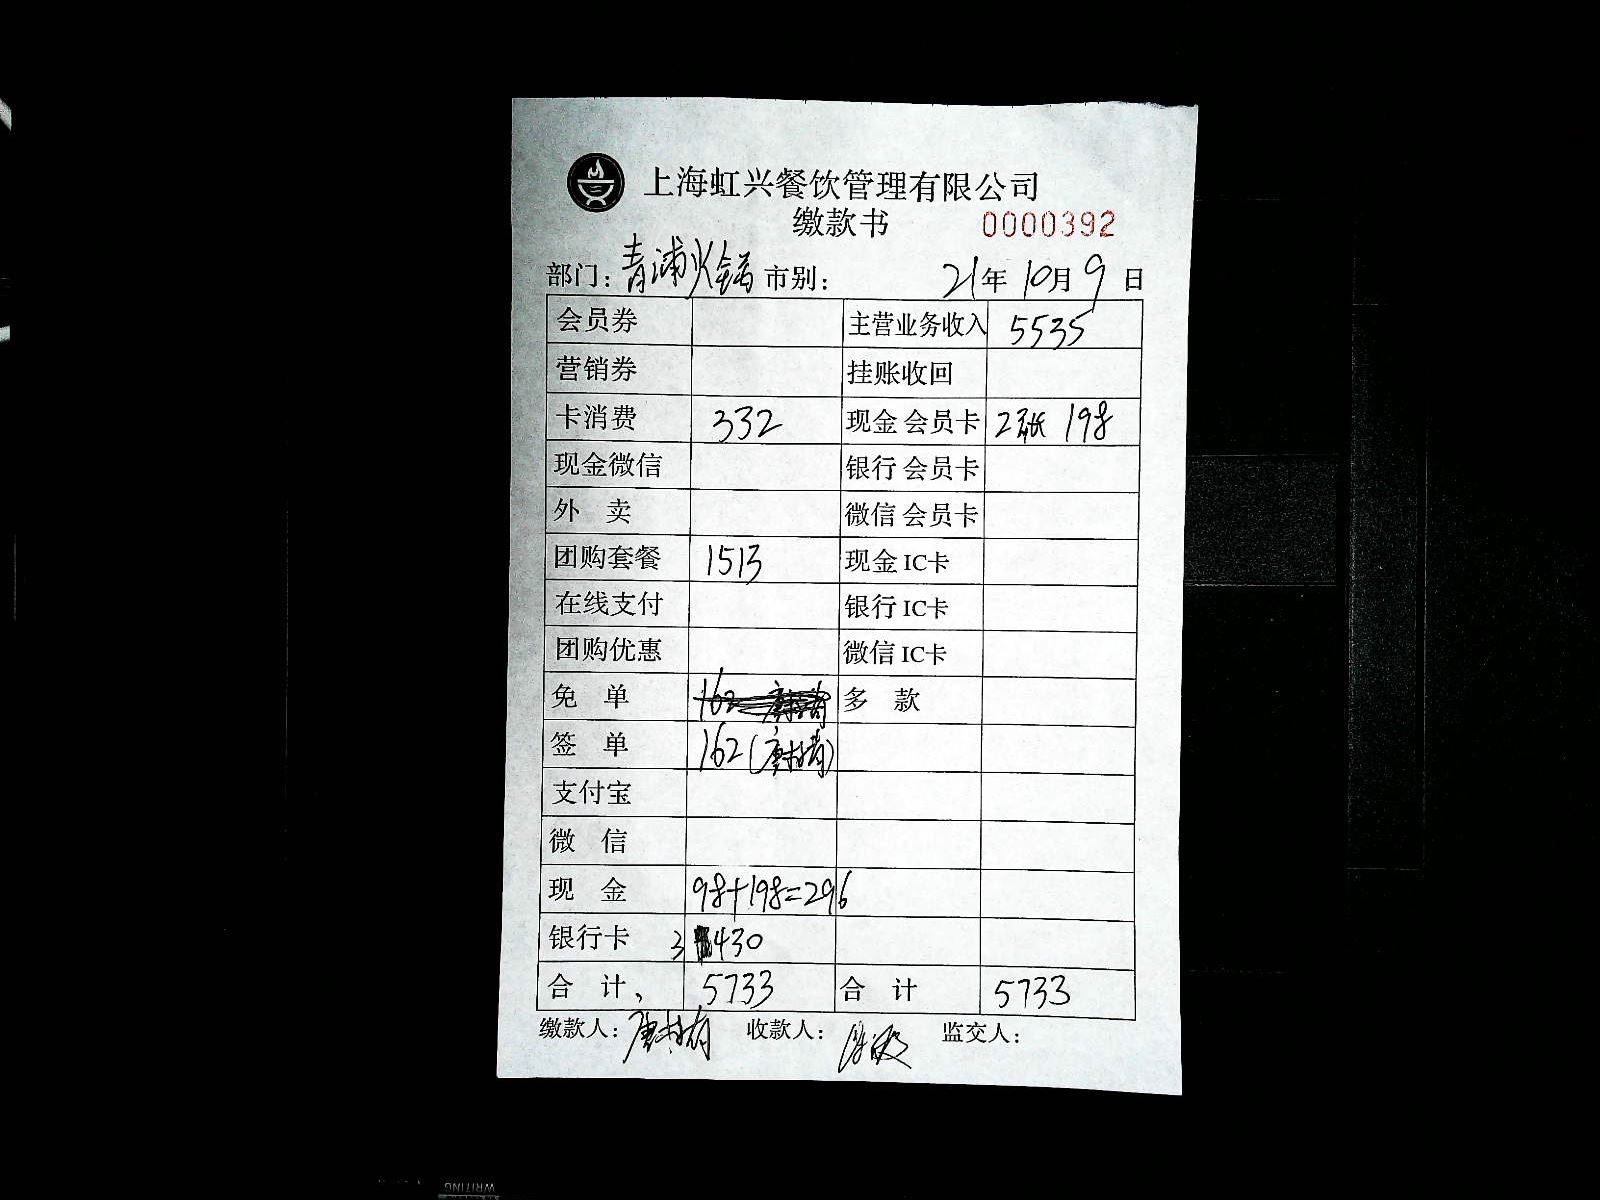 上海虹兴餐饮管理有限公司
缴款书 0000392
部门：青浦火锅 市别： 21年 10月 9日
会员券 主营业务收入 5535
营销券 挂账收回
卡消费 332 现金 会员卡 2张 198
现金微信 银行 会员卡
外 卖 微信 会员卡
团购套餐 1513 现金 IC卡
在线支付 银行 IC卡
团购优惠 微信 IC卡
免 单 162 多 款
签 单 162
支付宝
微 信
现 金 98+198=296
银行卡 3430
合 计、 5733 合 计 5733
缴款人： 收款人： 监交人：
WRITING